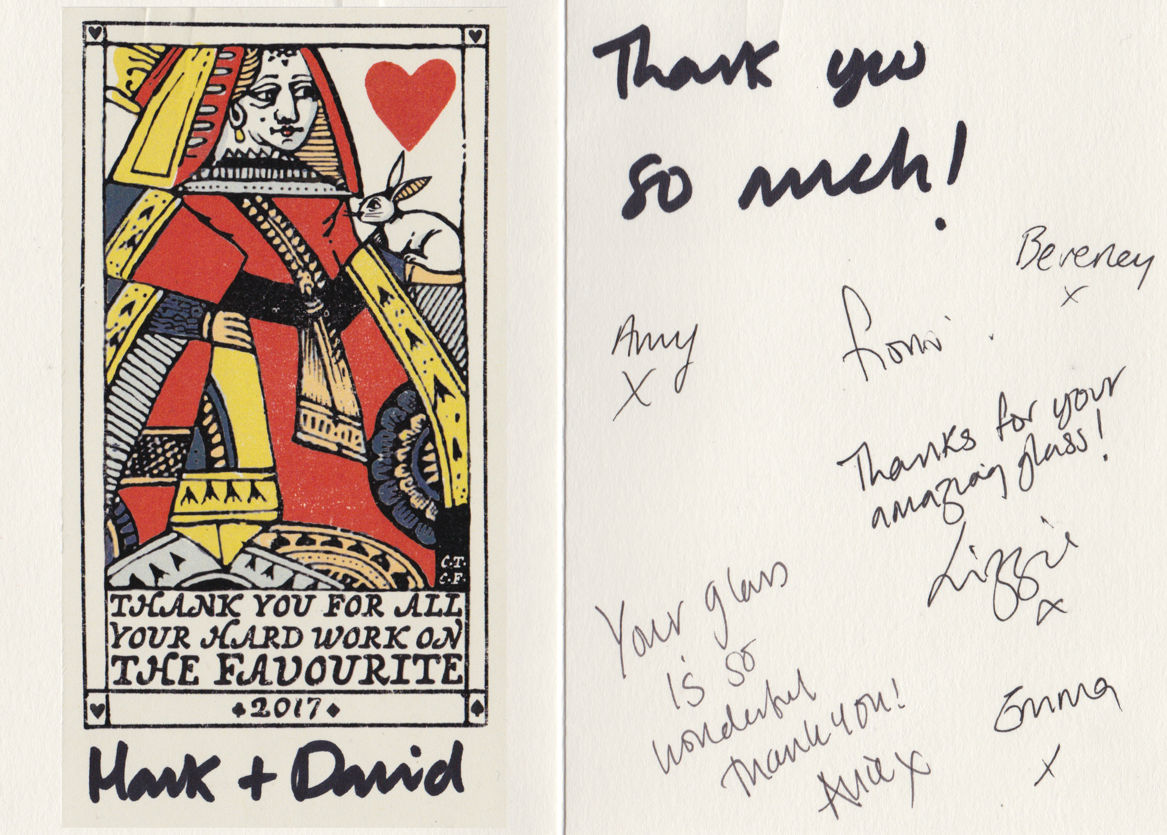 C.T.
C.F.
THANK YOU FOR ALL
YOUR HARD WORK ON
THE FAVOURITE
2017
Mark + David
Thank you
so much!
Amy
X
x
Thanks for your
amazing glass!
Lizzie
x
Your glass
is so
wonderful
Thank you!
Alice x
Emma
x